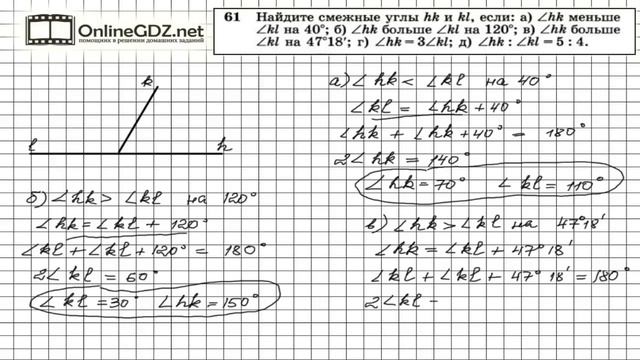 OnlineGDZ.net
помощник в решении домашних заданий
61 Найдите смежные углы hk и kl, если: а) ∠hk меньше
∠kl на 40°; б) ∠hk больше ∠kl на 120°; в) ∠hk больше
∠kl на 47°18′; г) ∠hk = 3∠kl; д) ∠hk : ∠kl = 5 : 4.
k
l
h
а) ∠hk < ∠kl на 40°
∠kl = ∠hk + 40°
∠hk + ∠hk + 40° = 180°
2∠hk = 140°
∠hk = 70° ∠kl = 110°
б) ∠hk > ∠kl на 120°
∠hk = ∠kl + 120°
∠kl + ∠kl + 120° = 180°
2∠kl = 60°
∠kl = 30° ∠hk = 150°
в) ∠hk > ∠kl на 47°18′
∠hk = ∠kl + 47°18′
∠kl + ∠kl + 47°18′ = 180°
2∠kl -